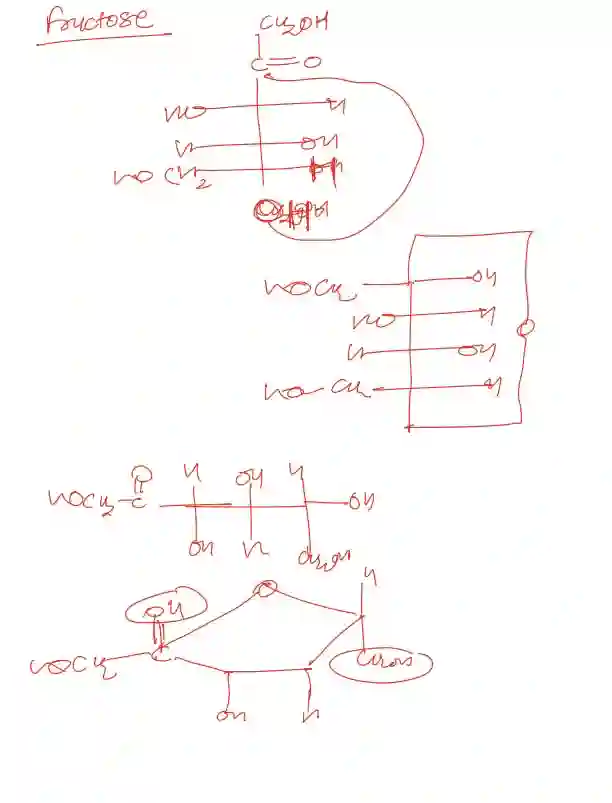 Fructose
CH2OH
C=O
HO H
H OH
HOCH2 H
HOCH2 OH
HO H
H OH
HO-CH2 H
O
O
HOCH2-C H OH H OH
OH H CH2OH
O H
OH
HOCH2 C
OH H